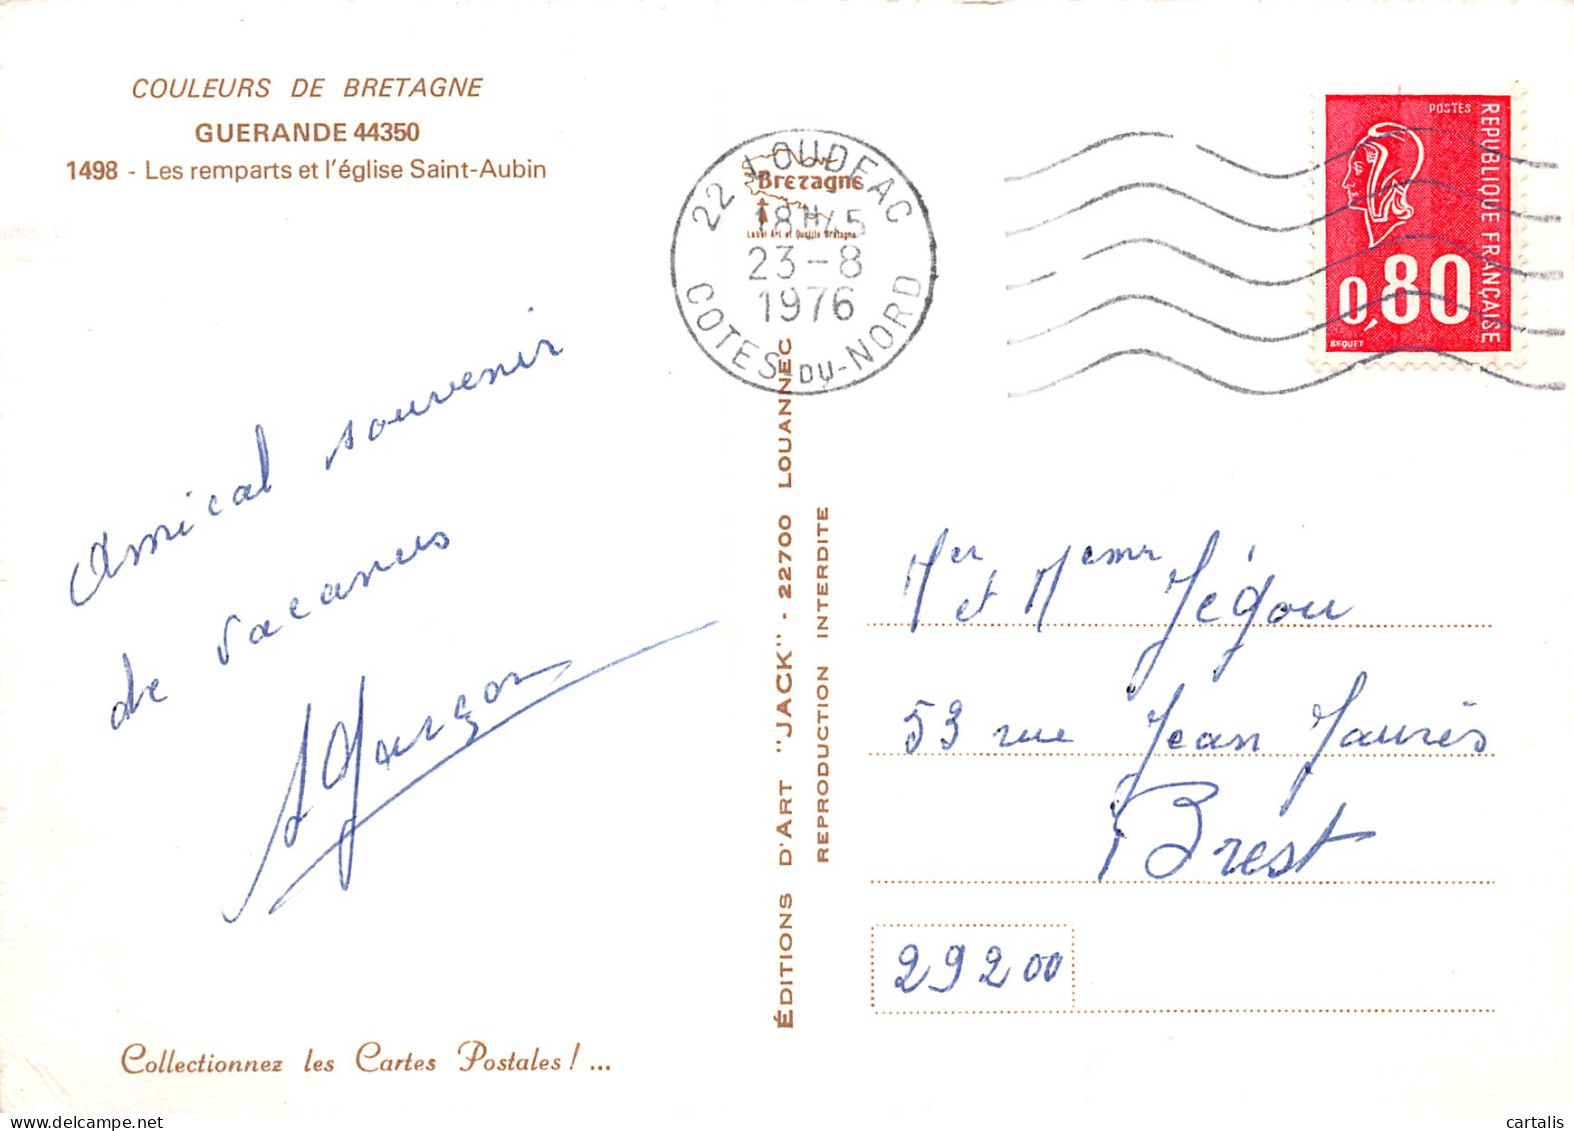 COULEURS DE BRETAGNE
GUERANDE 44350
1498 - Les remparts et l'église Saint-Aubin
22 LOUDEAC
Bretagne
18H45
Label Art et Qualité Bretagne
23-8
1976
COTES-DU-NORD
POSTES
REPUBLIQUE FRANÇAISE
0,80
BEQUET
Amical souvenir
de vacances
ÉDITIONS D'ART "JACK" - 22700 LOUANNEC
REPRODUCTION INTERDITE
Mer et Meme Jégou
53 rue Jean Jaurès
Brest
29200
Collectionnez les Cartes Postales ! ...
cartalis